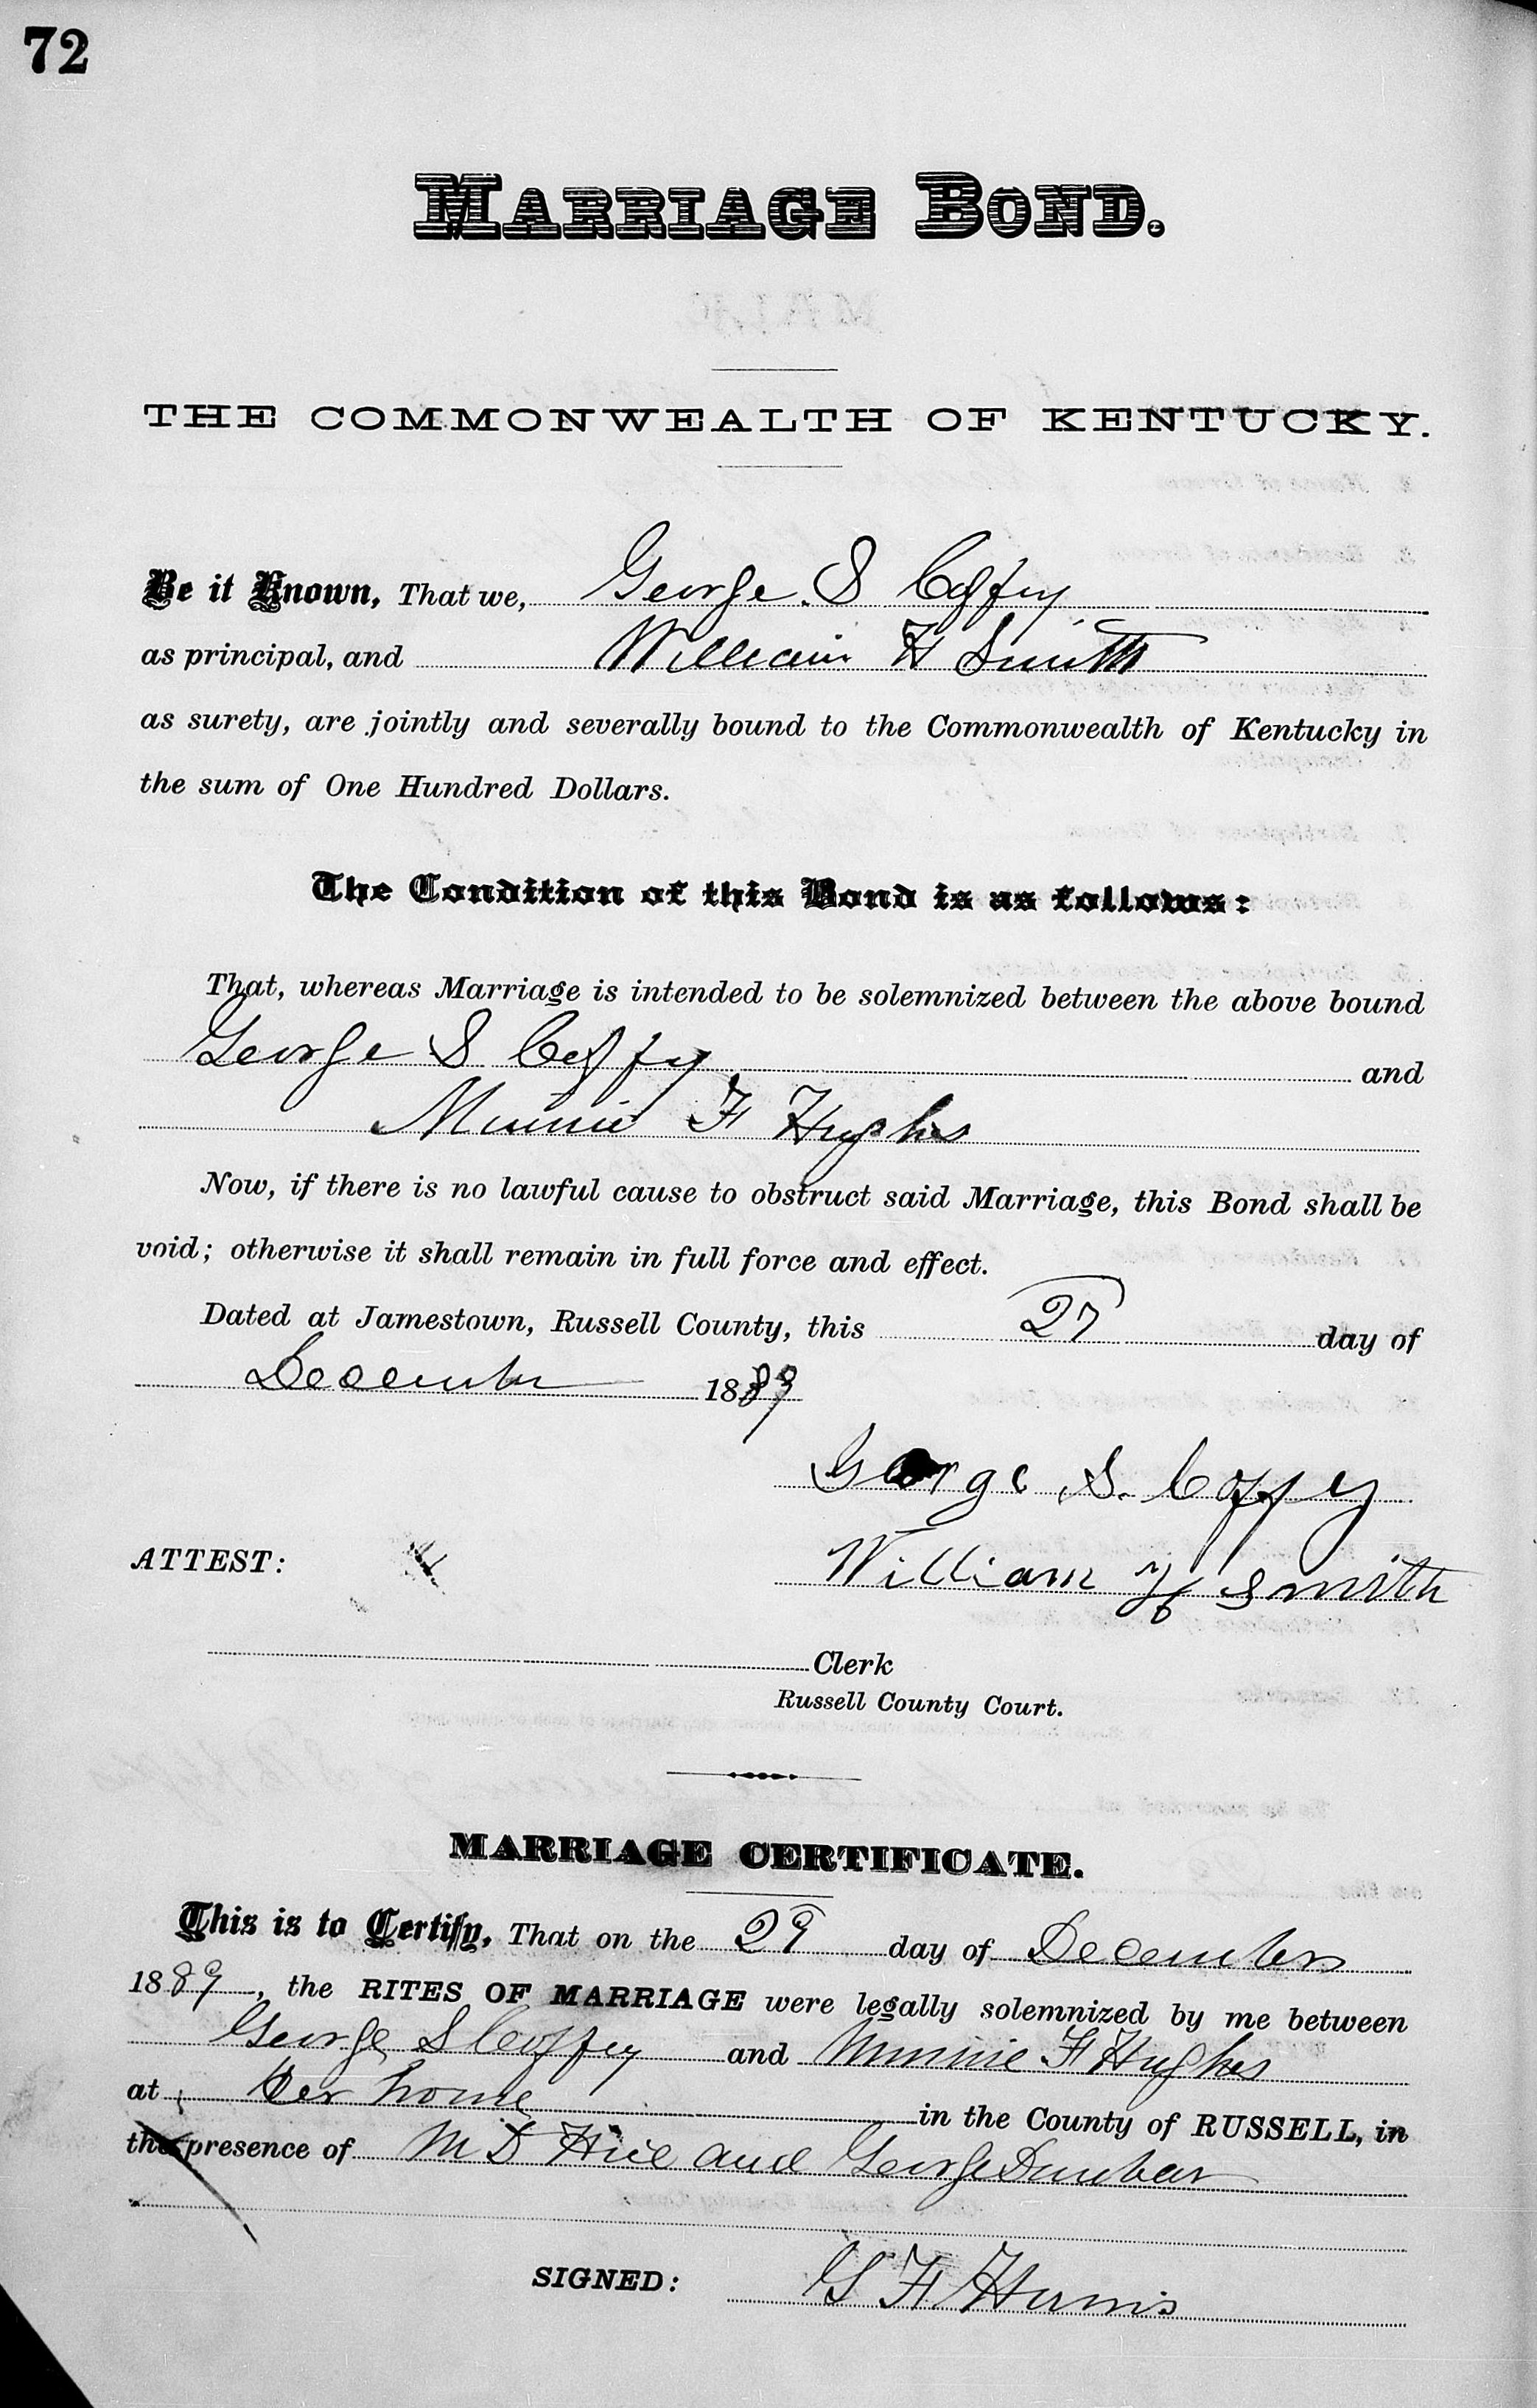 72
MARRIAGE BOND.
THE COMMONWEALTH OF KENTUCKY.
Be it Known, That we, George S Coffey
as principal, and William H Smith
as surety, are jointly and severally bound to the Commonwealth of Kentucky in
the sum of One Hundred Dollars.
The Condition of this Bond is as follows:
That, whereas Marriage is intended to be solemnized between the above bound
George S Coffey and
Minnie F Hughes
Now, if there is no lawful cause to obstruct said Marriage, this Bond shall be
void; otherwise it shall remain in full force and effect.
Dated at Jamestown, Russell County, this 27 day of
December 1889
George S. Coffey
ATTEST: William H Smith
Clerk
Russell County Court.
MARRIAGE CERTIFICATE.
This is to Certify, That on the 29 day of December
1889, the RITES OF MARRIAGE were legally solemnized by me between
George S Coffey and Minnie F Hughes
at her home in the County of RUSSELL, in
the presence of M D and George Dunbar
SIGNED: F Harris